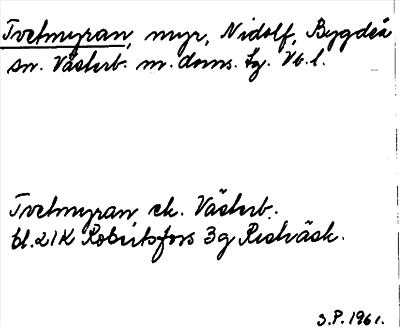 Tvetmyran, myr, Nidolf, Bygdeå
sn. Västerb. m. doms. Lg. Vb. l.
Tvetmyran ek. Västerb.
bl. 21K Robertsfors 3g Rislväsk.
S.P. 1961.